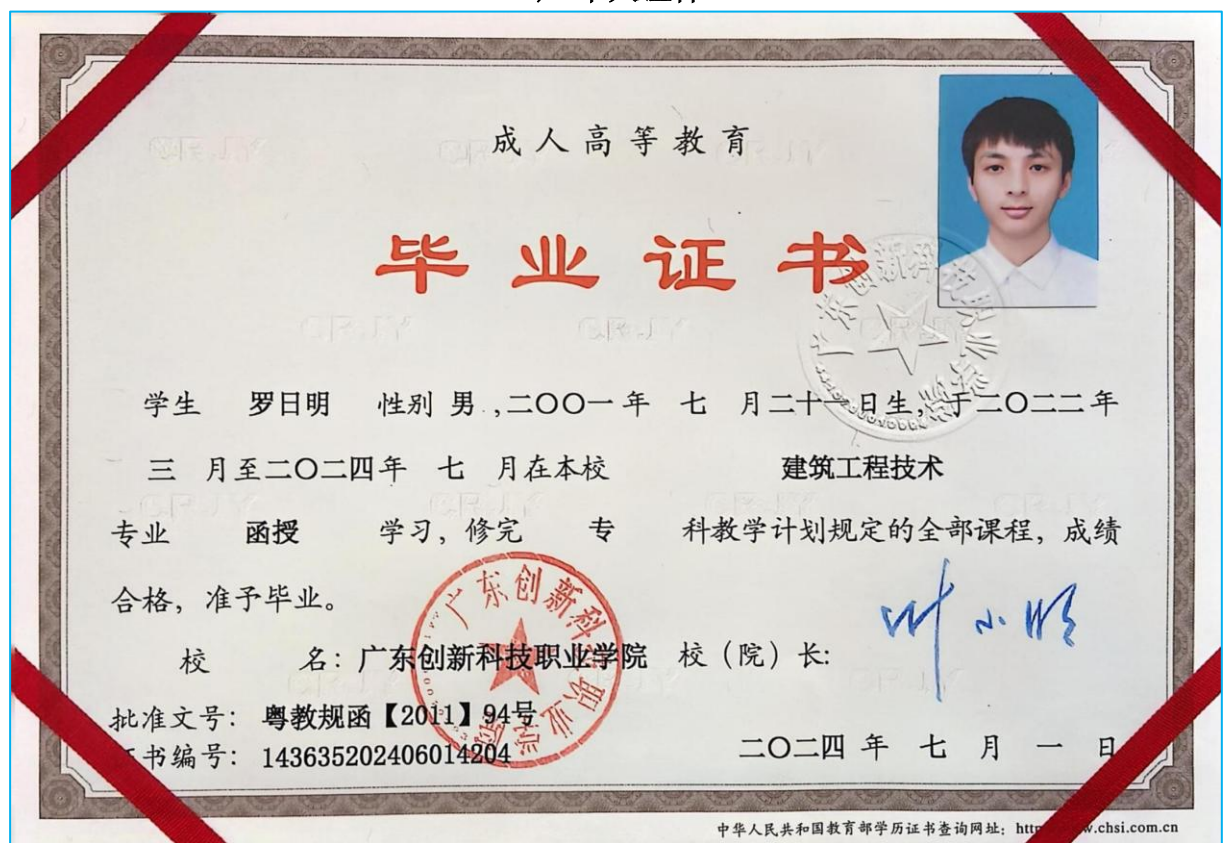 成人高等教育
毕业证书
学生 罗日明 性别 男 ,二〇〇一年 七 月二十一日生,于二〇二二年
三 月至二〇二四年 七 月在本校 建筑工程技术
专业 函授 学习,修完 专 科教学计划规定的全部课程,成绩
合格,准予毕业。
校 名:广东创新科技职业学院 校(院)长:
批准文号: 粤教规函【2011】94号
书编号: 143635202406014204
二〇二四 年 七 月 一 日
中华人民共和国教育部学历证书查询网址: htt w.chsi.com.cn
广东创新科技职业学院
广东创新科技职业学院